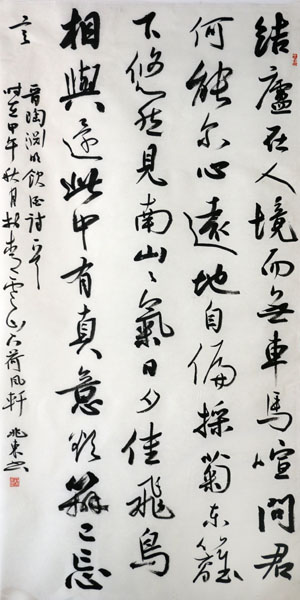 結廬在人境而無車馬喧問君
何能尔心遠地自偏採菊东籬
下悠然見南山〻氣日夕佳飛鳥
相與還此中有真意欲辯已忘
言
晋陶渊明飲酒诗一首
时在甲午秋月於 荷风軒 兆东书